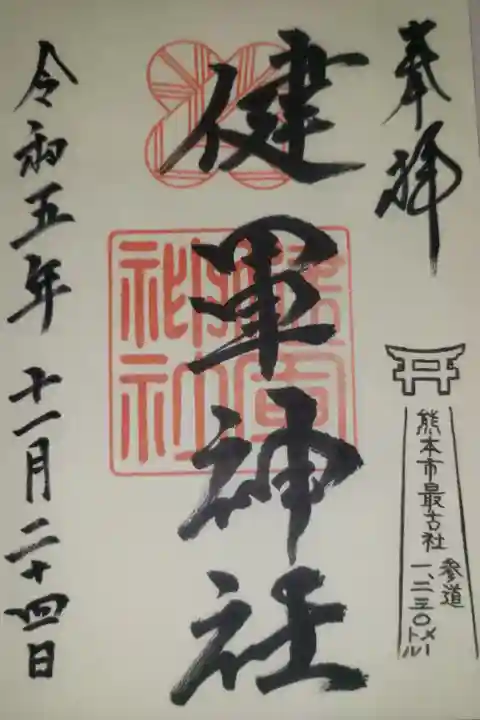 奉拝
熊本市最古社
参道
一、二三〇メートル
健軍神社
健軍神社
令和五年 十一月二十四日